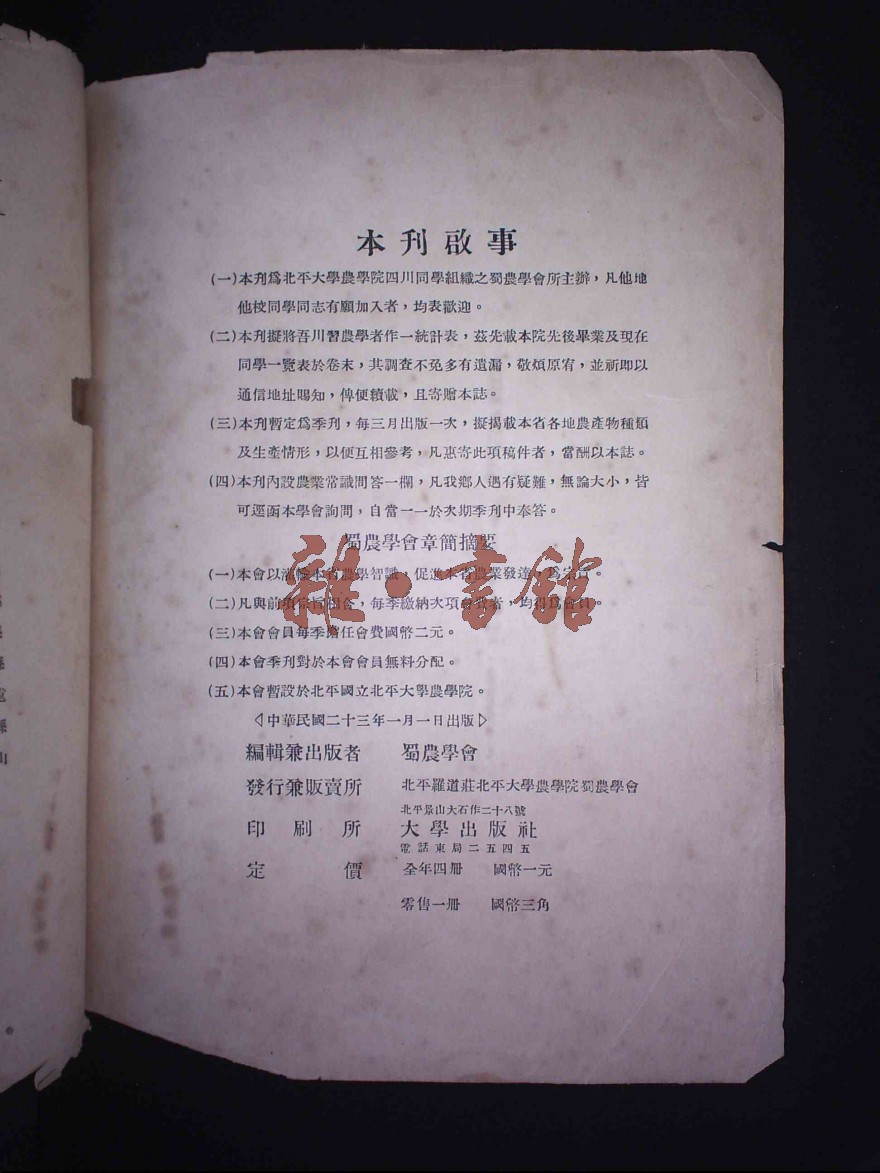 本刊啟事
(一)本刊爲北平大學農學院四川同學組織之蜀農學會所主辦，凡他地
他校同學同志有願加入者，均表歡迎。
(二)本刊擬將吾川習農學者作一統計表，茲先載本院先後畢業及現在
同學一覽表於卷末，其調查不免多有遺漏，敬煩原宥，並祈即以
通信地址賜知，俾便續載，且寄贈本誌。
(三)本刊暫定爲季刊，每三月出版一次，擬揭載本省各地農產物種類
及生產情形，以便互相參考，凡惠寄此項稿件者，當酬以本誌。
(四)本刊內設農業常識問答一欄，凡我鄉人遇有疑難，無論大小，皆
可逕函本學會詢問，自當一一於次期季刊中奉答。
蜀農學會章簡摘要
(一)本會以灌輸本省農學智識，促進本省農業發達，爲宗旨。
(二)凡與前項宗旨相合，每季繳納次項會費者，均得爲會員。
(三)本會會員每季擔任會費國幣二元。
(四)本會季刊對於本會會員無料分配。
(五)本會暫設於北平國立北平大學農學院。
◁中華民國二十三年一月一日出版▷
編輯兼出版者 蜀農學會
發行兼販賣所 北平羅道莊北平大學農學院蜀農學會
北平景山大石作二十八號
印刷所 大學出版社
電話東局二五四五
定價 全年四册 國幣一元
零售一册 國幣三角
雜·書館